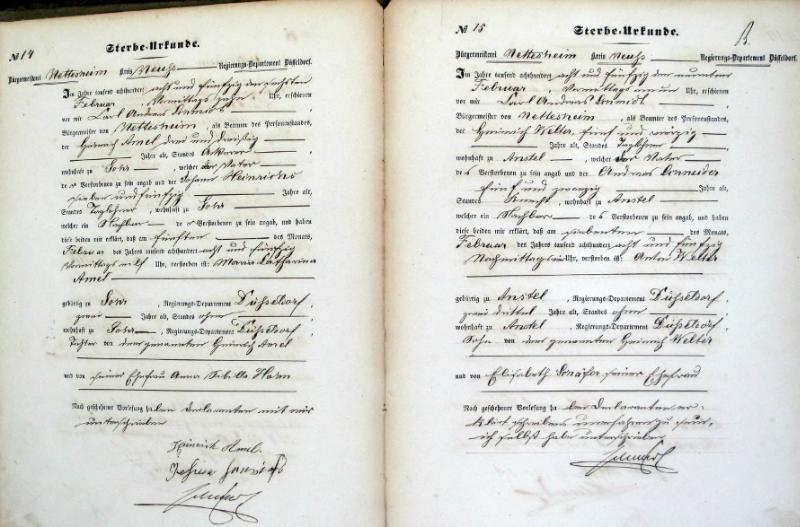 № 14
Sterbe-Urkunde.
Bürgermeisterei Nettesheim Kreis Neuss Regierungs-Departement Düsseldorf.
Im Jahre tausend achthundert acht und fünfzig den sechsten
Februar, Vormittags zehn Uhr, erschienen
vor mir Carl Andreas Schmidt
Bürgermeister von Nettesheim, als Beamter des Personenstandes,
der Heinrich Amel drei und dreißig
Jahre alt, Standes Ackerer
wohnhaft zu Sohr, welcher der Vater
der Verstorbenen zu sein angab und der Johann Heinrichs
sieben und fünfzig Jahre alt,
Standes Taglöhner, wohnhaft zu Sohr
welcher ein Nachbar der Verstorbenen zu sein angab, und haben
diese beiden mir erklärt, daß am fünften des Monats
Februar des Jahres tausend achthundert acht und fünfzig
Vormittags elf Uhr, verstorben ist: Maria Catharina
Amel
gebürtig zu Sohr, Regierungs-Departement Düsseldorf,
zwei Jahre alt, Standes ohne
wohnhaft zu Sohr, Regierungs-Departement Düsseldorf,
Tochter von dem genannten Heinrich Amel
und von seiner Ehefrau Anna Horn
Nach geschehener Vorlesung haben Declaranten mit mir
unterschrieben
Heinrich Amel
Schmidt
№ 15
B.
Sterbe-Urkunde.
Bürgermeisterei Nettesheim Kreis Neuss Regierungs-Departement Düsseldorf.
Im Jahre tausend achthundert acht und fünfzig den neunten
Februar, Vormittags neun Uhr, erschienen
vor mir Carl Andreas Schmidt
Bürgermeister von Nettesheim, als Beamter des Personenstandes,
der Heinrich Welter, fünf und vierzig
Jahre alt, Standes Taglöhner
wohnhaft zu Anstel, welcher der Vater
des Verstorbenen zu sein angab und der Andreas Schneider
fünf und zwanzig Jahre alt,
Standes Knecht, wohnhaft zu Anstel
welcher ein Nachbar des Verstorbenen zu sein angab, und haben
diese beiden mir erklärt, daß am siebenten des Monats
Februar des Jahres tausend achthundert acht und fünfzig
Nachmittags Uhr, verstorben ist: Anton Welter
gebürtig zu Anstel, Regierungs-Departement Düsseldorf,
zwei drittel Jahre alt, Standes ohne
wohnhaft zu Anstel, Regierungs-Departement Düsseldorf,
Sohn von dem genannten Heinrich Welter
und von Elisabeth Schäfer seiner Ehefrau
Nach geschehener Vorlesung haben Declaranten er-
klärt schreibens unerfahren zu sein,
ich selbst habe unterschrieben
Schmidt